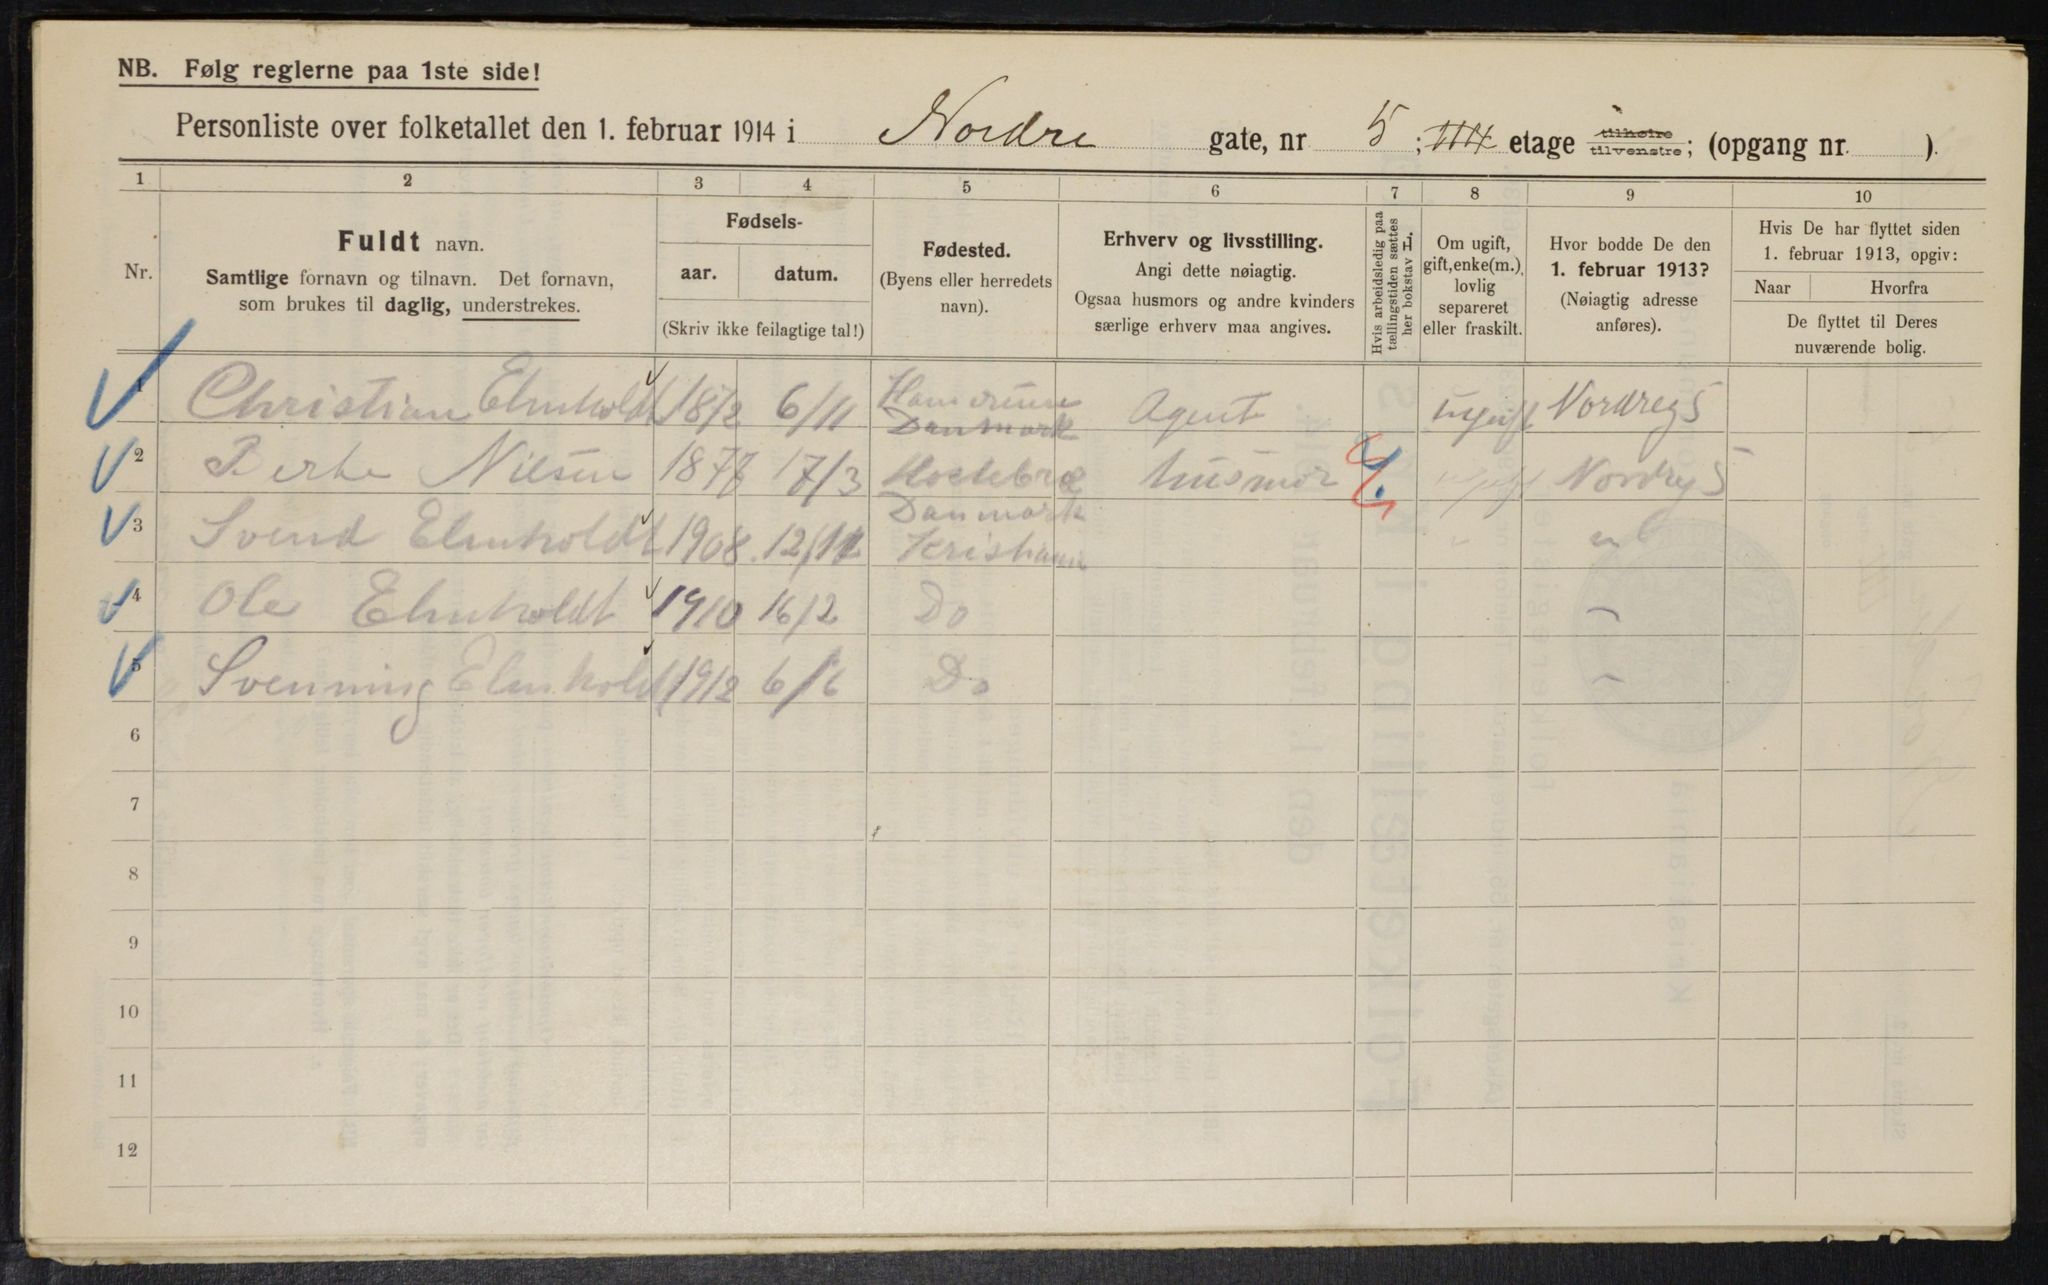 NB. Følg reglerne paa 1ste side!
Personliste over folketallet den 1. februar 1914 i Nordre gate, nr 5; etage tilhøire tilvenstre; (opgang nr. ).
1 2 3 4 5 6 7 8 9 10
Nr.
Fuldt navn.
Samtlige fornavn og tilnavn. Det fornavn,
som brukes til daglig, understrekes.
Fødsels-
aar. datum.
(Skriv ikke feilagtige tal!)
Fødested.
(Byens eller herredets
navn).
Erhverv og livsstilling.
Angi dette nøiagtig.
Ogsaa husmors og andre kvinders
særlige erhverv maa angives.
Hvis arbeidsledig paa
tællingstiden sættes
her bokstav L.
Om ugift,
gift, enke(m.),
lovlig
separeret
eller fraskilt.
Hvor bodde De den
1. februar 1913?
(Nøiagtig adresse
anføres).
Hvis De har flyttet siden
1. februar 1913, opgiv:
Naar Hvorfra
De flyttet til Deres
nuværende bolig.
1 Christian Elmholdt 1872 6/11 Danmark Agent ugift Nordreg 5
2 Nilsen 1877 17/3 Danmark husmor ugift Nordreg 5
3 Svend Elmholdt 1908 Kristiania "
4 Ole Elmholdt 1910 16/2 Do "
5 Svenning Elmholdt 1912 6/6 Do "
6
7
8
9
10
11
12